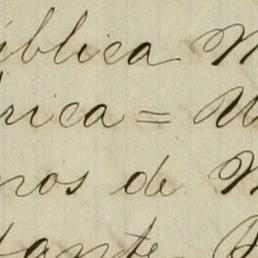 ública
rica =
nos de
tante